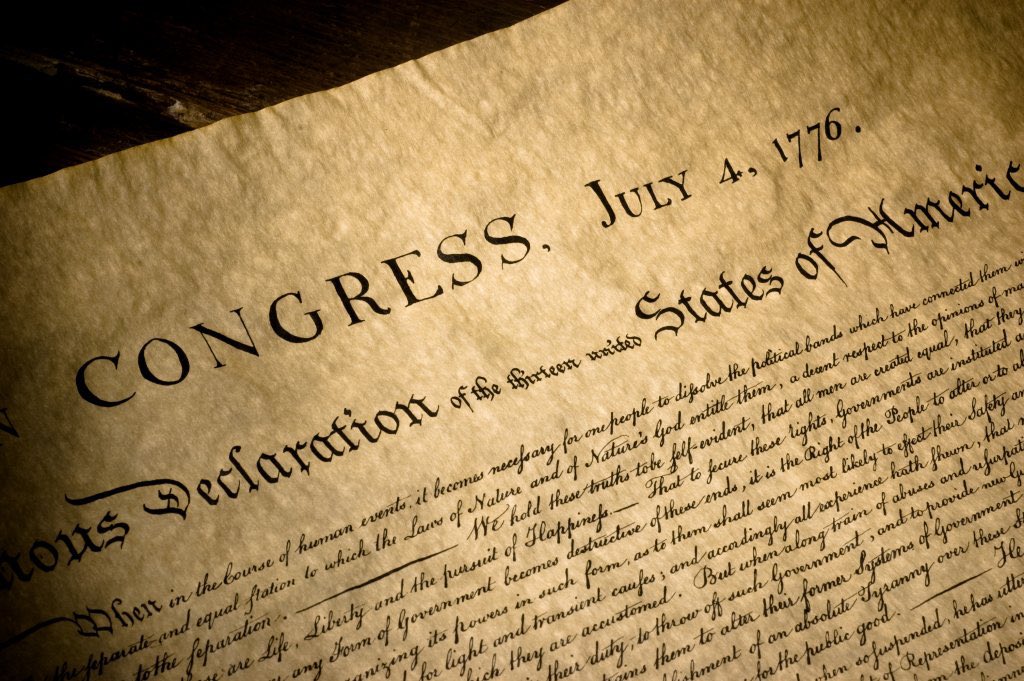 N CONGRESS, JULY 4, 1776.
mous Declaration of the thirteen united States of Americ
When in the Course of human events, it becomes neceſsary for one people to diſsolve the political bands which have connected them w
the ſeparate and equal ſtation to which the Laws of Nature and of Nature's God entitle them, a decent respect to the opinions of ma
to the ſeparation. —— We hold these truths to be ſelf-evident, that all men are created equal, that they
are Life, Liberty and the pursuit of Happineſs.— That to ſecure these rights, Governments are instituted a
any Form of Government becomes destructive of these ends, it is the Right of the People to alter or to ab
ganizing its powers in such form, as to them shall seem most likely to effect their Safety an
for light and transient cauſes; and accordingly all experience hath ſhewn, that
which they are accustomed. But when a long train of abuses and uſurpati
their duty, to throw off such Government, and to provide new G
trains them to alter their former Systems of Government
lishment of an absolute Tyranny over these S
for the public good. —— He
when so suspended, he has utter
of Representation in
the depos